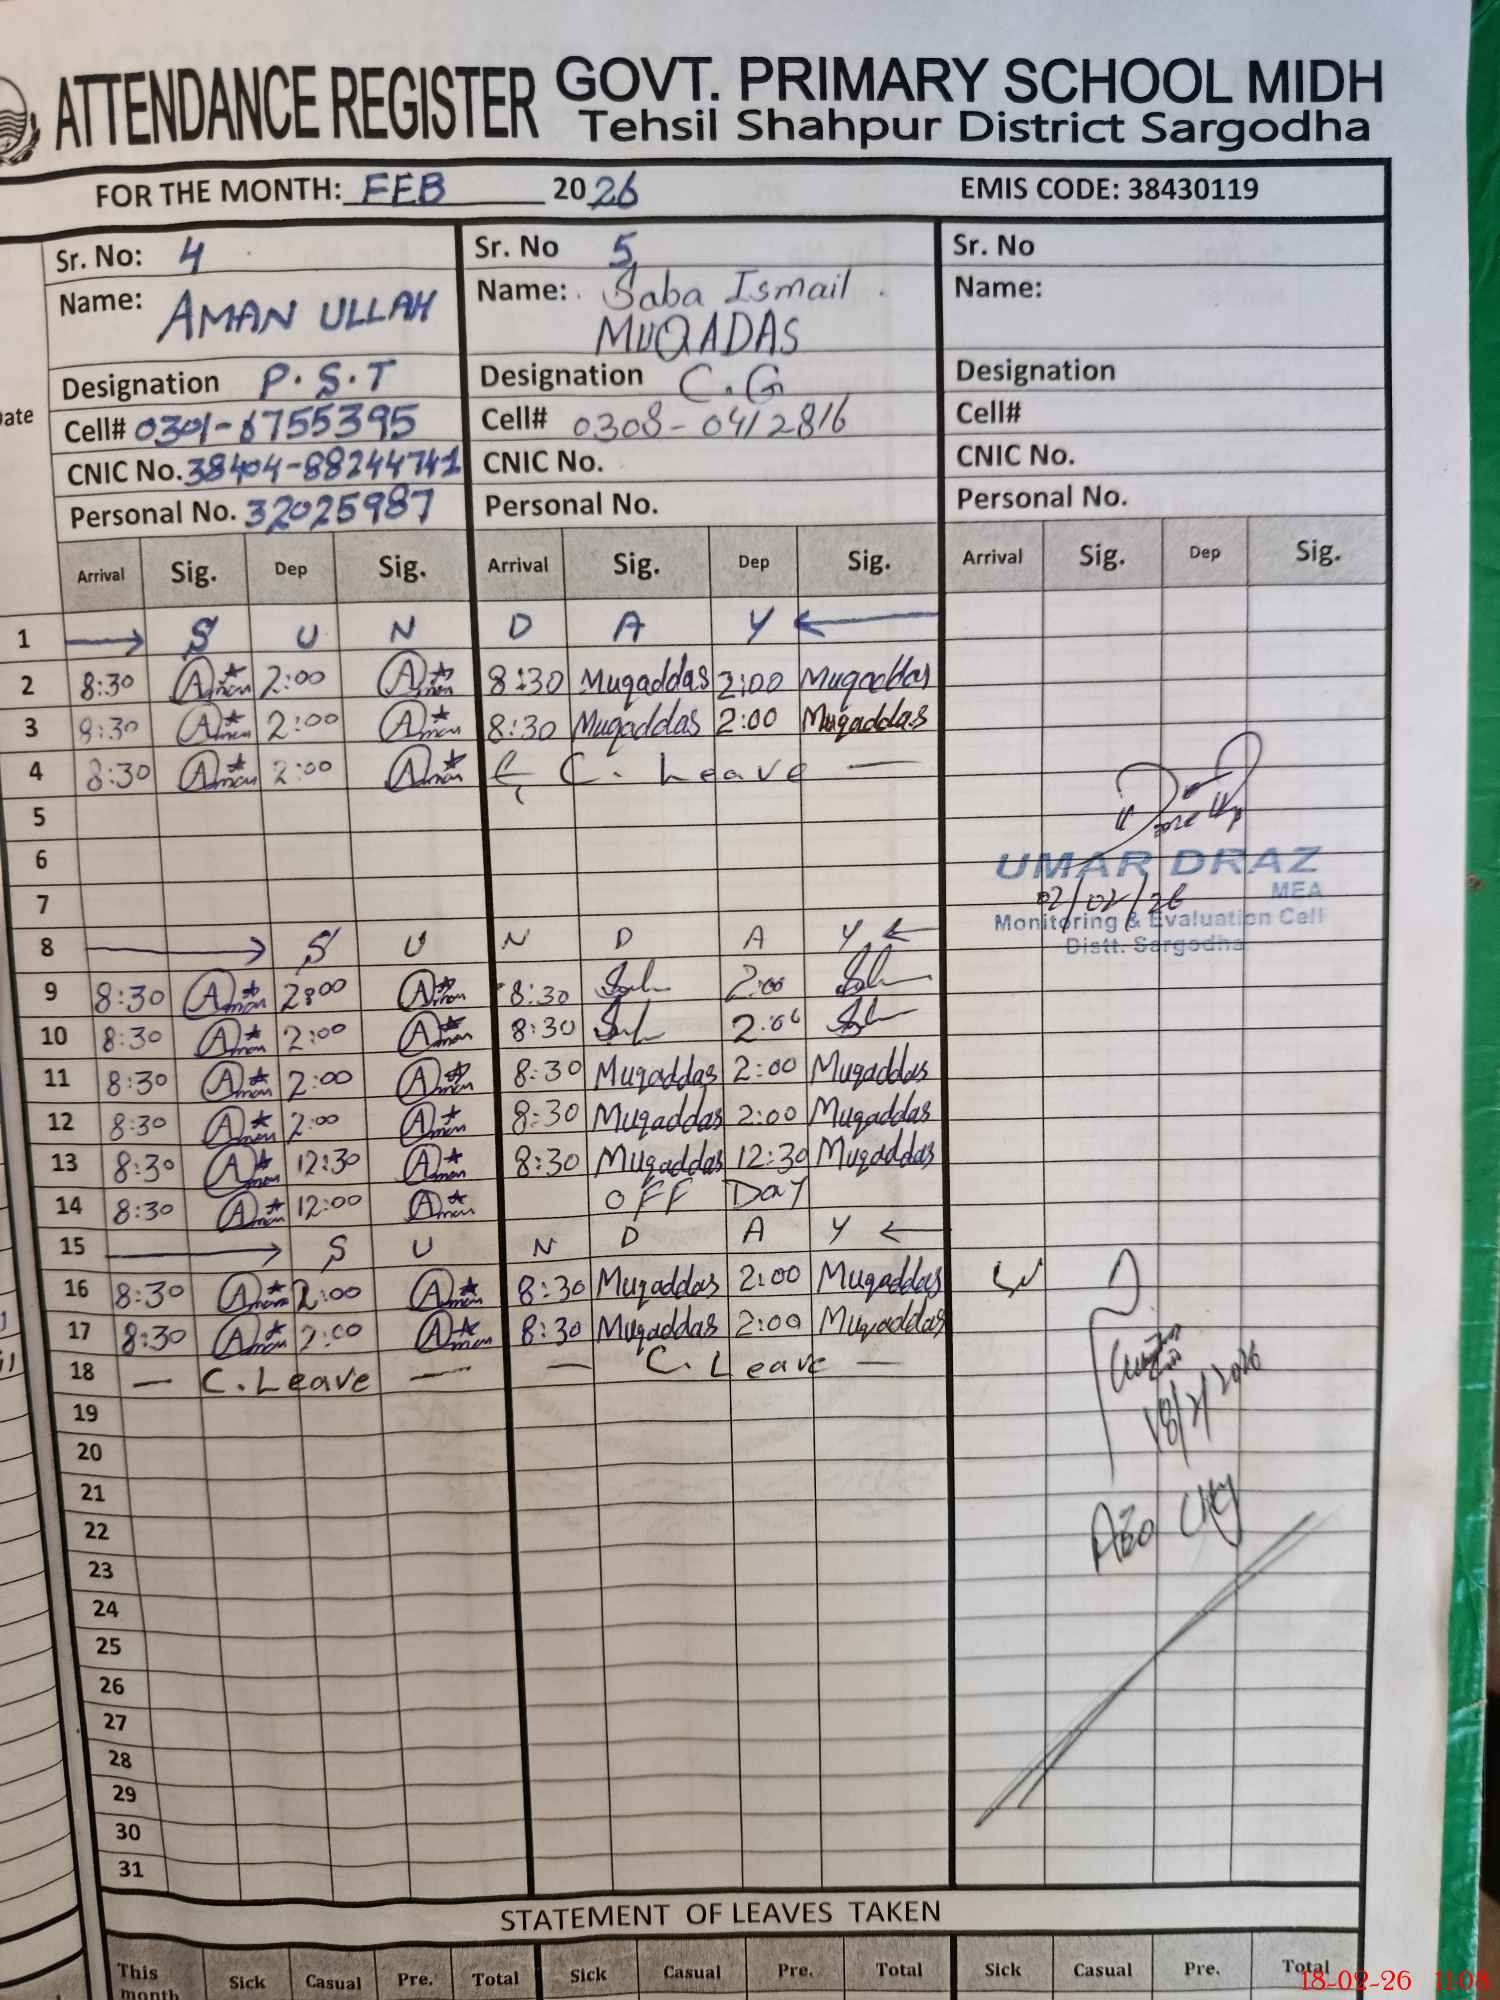 ATTENDANCE REGISTER GOVT. PRIMARY SCHOOL MIDH
Tehsil Shahpur District Sargodha
FOR THE MONTH: FEB 2026 EMIS CODE: 38430119
Sr. No: 4 Sr. No 5 Sr. No
Name: AMAN ULLAH Name: Saba Ismail Name:
MUQADAS
Designation P.S.T Designation C.G Designation
Cell# 0301-6755395 Cell# 0308-0412816 Cell#
CNIC No. 38404-88244741 CNIC No. CNIC No.
Personal No. 32025987 Personal No. Personal No.
Arrival Sig. Dep Sig. Arrival Sig. Dep Sig. Arrival Sig. Dep Sig.
1 S U N D A Y
2 8:30 Aman 2:00 Aman 8:30 Muqaddas 2:00 Muqaddas
3 8:30 Aman 2:00 Aman 8:30 Muqaddas 2:00 Muqaddas
4 8:30 Aman 2:00 Aman C. Leave
5
6
UMAR DRAZ
MEA
7
02/02/26
Monitoring & Evaluation Cell
Distt. Sargodha
8 S U N D A Y
9 8:30 Aman 2:00 Aman 8:30 2:00
10 8:30 Aman 2:00 Aman 8:30 2:00
11 8:30 Aman 2:00 Aman 8:30 Muqaddas 2:00 Muqaddas
12 8:30 Aman 2:00 Aman 8:30 Muqaddas 2:00 Muqaddas
13 8:30 Aman 12:30 Aman 8:30 Muqaddas 12:30 Muqaddas
14 8:30 Aman 12:00 Aman OFF Day
15 S U N D A Y
16 8:30 Aman 2:00 Aman 8:30 Muqaddas 2:00 Muqaddas
17 8:30 Aman 2:00 Aman 8:30 Muqaddas 2:00 Muqaddas
18 C. Leave C. Leave
18/2/2026
19
20
21
22
23
24
25
26
27
28
29
30
31
STATEMENT OF LEAVES TAKEN
This month Sick Casual Pre. Total Sick Casual Pre. Total Sick Casual Pre. Total
18-02-26 11:08